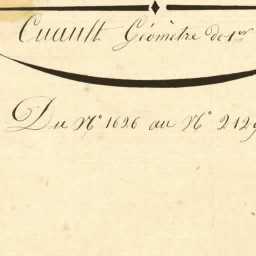 Cuault Géomètre de 1er
Du N° 1626 au N° 2129